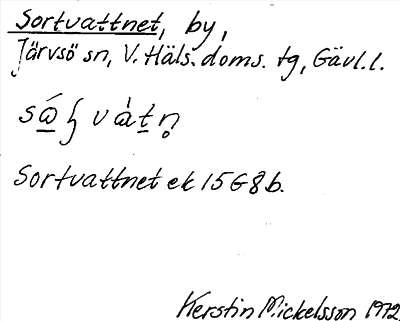 Sortvattnet, by,
Järvsö sn, V. Häls. doms. tg, Gävl. l.
Sortvattnet ek 15G8b.
Kerstin Mickelsson 1972